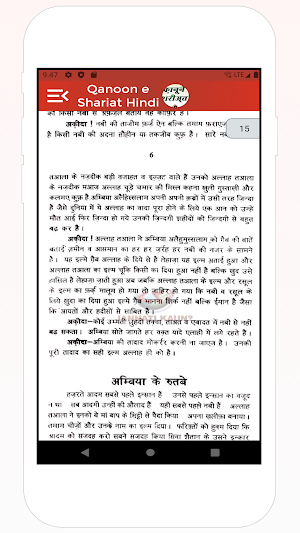 9:47
LTE
Qanoon e
Shariat Hindi
क़ानूने
शरीअत
को किसी नबी से अफ़ज़ल बताये वह काफ़िर है।
अक़ीदा ! नबी की ताज़ीम फ़र्ज़ ऐन बल्कि तमाम
है किसी नबी की अदना तौहीन या तकज़ीब कुफ़्र है। सारे
15
6
तआला के नज़दीक बड़ी वजाहत व इज़्ज़त वाले हैं उनको अल्लाह तआला
के नज़दीक मआज़ अल्लाह चूड़े चमार की मिस्ल कहना खुली गुस्ताख़ी और
कलमए कुफ़्र है अम्बिया अलैहिस्सलाम अपनी अपनी क़ब्रों में उसी तरह ज़िन्दा
हैं जैसे दुनिया में थे अल्लाह का वादा पूरा होने के लिये एक आन को उन्हें
मौत आई फिर ज़िन्दा हो गये उनकी ज़िन्दगी शहीदों की ज़िन्दगी से बहुत
बढ़ कर है।
अक़ीदा ! अल्लाह तआला ने अम्बिया अलैहुमुस्सलाम को ग़ैब की बातें
बताईं ज़मीन व आसमान का हर हर ज़र्रह हर नबी की नज़र के सामने
है। यह इल्मे ग़ैब अल्लाह के दिये से है लेहाज़ा यह इल्म अताई हुआ और
अल्लाह तआला का इल्म चूंकि किसी का दिया हुआ नहीं है बल्कि खुद उसे
हासिल है लेहाज़ा ज़ाती हुआ अब जबकि अल्लाह तआला के इल्म और रसूल
के इल्म का फ़र्क़ मालूम हो गया तो ज़ाहिर हो गया कि नबी व रसूल के
लिये ख़ुदा का दिया हुआ इल्मे ग़ैब मानना शिर्क नहीं बल्कि ईमान है जैसा
कि आयतों और हदीसों से साबित है।
JANNATI KAUN?
अक़ीदा–कोई उम्मती ज़ुहद व तक़वा, ताअत व एबादत में नबी से नहीं
बढ़ सकता। अम्बिया सोते जागते हर वक़्त यादे एलाही में लगे रहते हैं।
अक़ीदा–अम्बिया की तादाद मोकर्रर करनी ना जाएज़ है। उनकी
पूरी तादाद का सही इल्म अल्लाह ही को है।
अम्बिया के रुतबे
हज़रते आदम सबसे पहले इन्सान हैं उनसे पहले इन्सान का वजूद
न था सब आदमी उन्हीं की औलाद हैं यही सबसे पहले नबी हैं अल्लाह
तआला ने इनको बे मां बाप के मिट्टी से पैदा किया अपना ख़लीफ़ा बनाया।
तमाम चीज़ों और उनके नाम का इल्म दिया। फ़रिश्तों को हुक्म दिया कि
आदम को सजदह करो सबने सजदह किया सिवा शैतान के उसने इन्कार